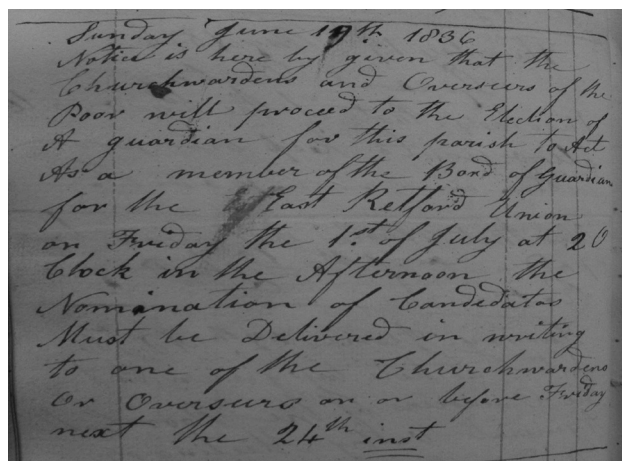 Sunday June 19th 1836
Notice is here by given that the
Churchwardens and Overseers of the
Poor will proceed to the Election of
A guardian for this parish to Act
As a member of the Bord of Guardian
for the East Retford Union
on Friday the 1st of July at 2 O
Clock in the Afternoon the
Nomination of Candidates
Must be Delivered in writing
to one of the Churchwardens
Or Overseers on or before Friday
next the 24th inst